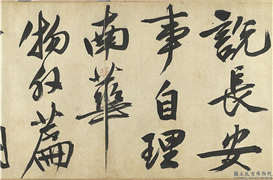 說長安
事自理
南華
物外篇
國立故宮博物院